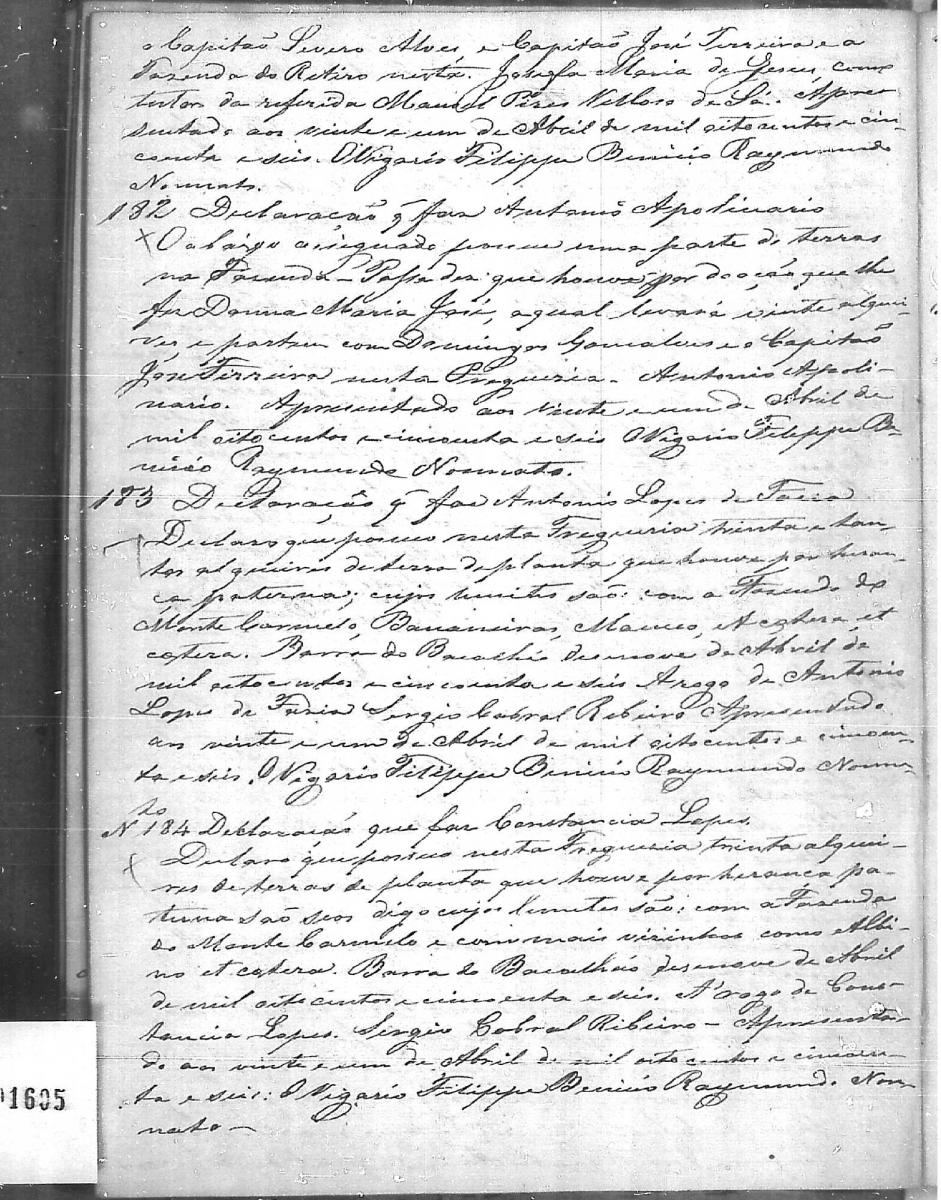 o Capitaõ Severo Alves, e Capitaõ José Ferreira e a
Fazenda do Retiro nesta. Josefa Maria de Jesus, como
tutor da referida Manoel Pires Vellozo de Sá. Apre-
sentado aos vinte e um de Abril de mil oito centos e cin-
coenta e seis. O Vigario Filippe Benicio Raymundo
Nonnato.
182 Declaracaõ q̃ faz Antonio Apolinario
O abaixo assignado possue uma parte de terras
na Fazenda - que houve por doação que lhe
fez Donna Maria José, a qual levará vinte alquei-
res e partem com Domingos Goncalves e o Capitaõ
José Ferreira nesta Freguezia. Antonio Apoli-
nario. Apresentado aos vinte e um de Abril de
mil oito centos e cincoenta e seis O Vigario Filippe Be-
nicio Raymundo Nonnato.
183 Declaração q̃ faz Antonio Lopes de Faria
Declaro que possuo nesta Freguezia trinta e tan-
tos alqueires de terra de planta que houve por heran-
ca paterna; cujos limites são: com a Fazenda do
Monte Carmelo, Bananeiras, et
cetera. Barra do Bacalháo desenove de Abril de
mil oito centos e cincoenta e seis A rogo de Antonio
Lopes de Faria Sergio Cabral Ribeiro Apresentado
aos vinte e um de Abril de mil oito centos e cincoen-
ta e seis. O Vigario Filippe Benicio Raymundo Nonna-
to
N 184 Declaracaõ que faz Constancia Lopes.
Declaro que possuo nesta Freguezia trinta alquei-
res de terras de planta que houve por heranca pa-
terna são seos digo cujos limites são: com a Fazenda
do Monte Carmelo e com mais vizinhos como Albi-
no et cetera. Barra do Bacalháo desenove de Abril
de mil oito centos e cincoenta e seis. A rogo de Cons-
tancia Lopes. Sergio Cabral Ribeiro - Apresenta-
do aos vinte e um de Abril de mil oito centos e cincoen-
ta e seis: O Vigario Filippe Benicio Raymundo Non-
nato -
1605